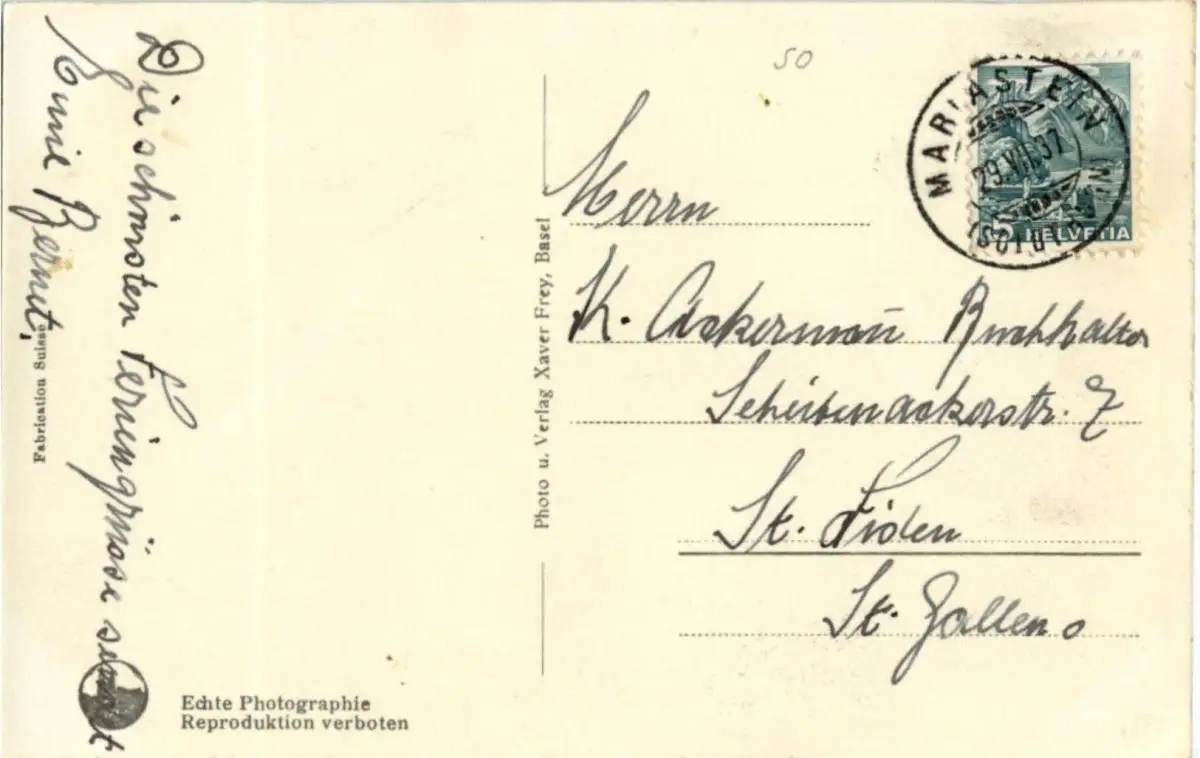 Die schönsten Feriengrüsse sendet
Bernet,
Fabrication Suisse
Echte Photographie
Reproduktion verboten
Photo u. Verlag Xaver Frey, Basel
50
MARIASTEIN
29.VII.37
(SOLOTHURN)
5 HELVETIA
Herrn
K. Ackermann Buchhalter
Scheibenackerstr. 7
St. Fiden
St. Gallen o